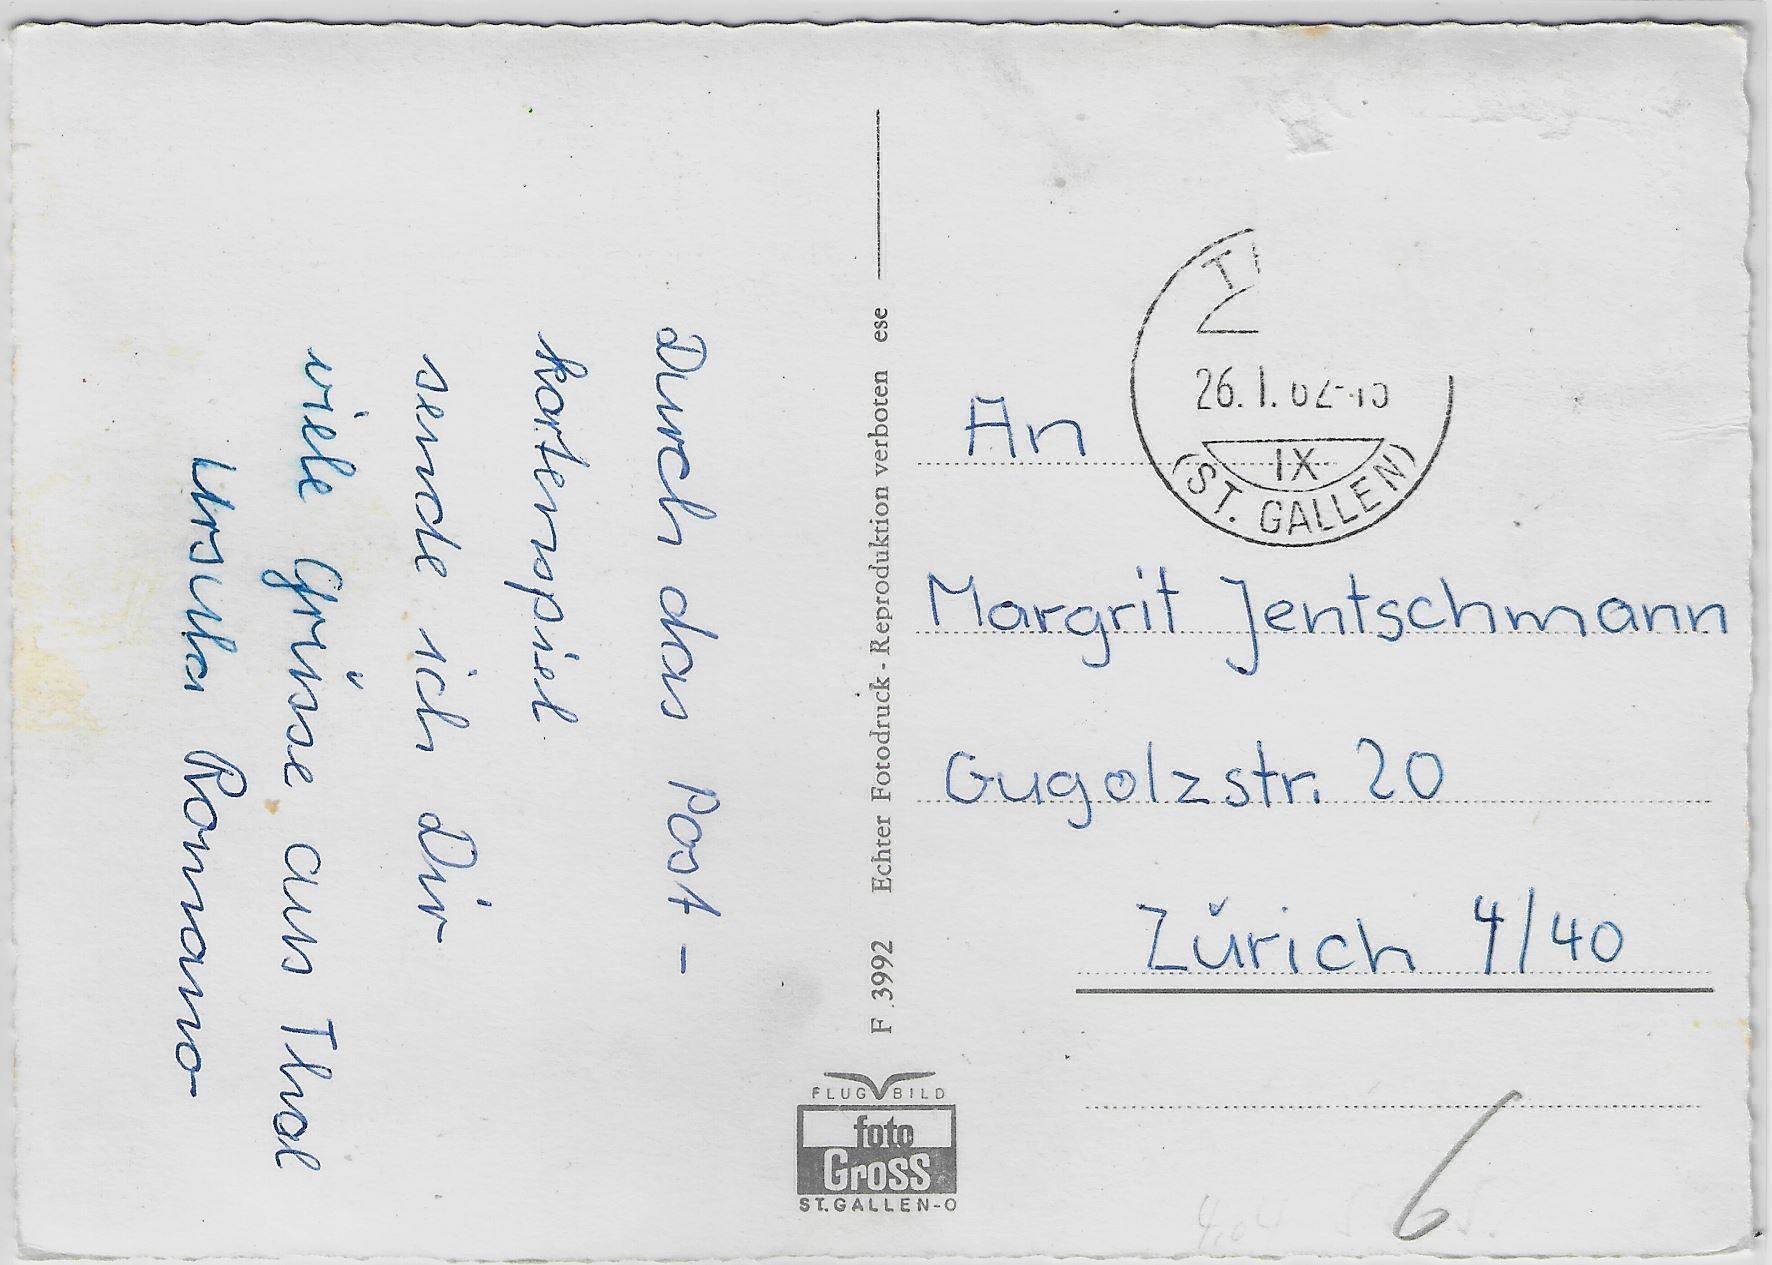 Durch das Post-
kartenspiel
sende ich Dir
viele Grüsse aus Thal
Ursula Romano
F 3992 Echter Fotodruck - Reproduktion verboten ese
FLUG BILD
foto
Gross
ST. GALLEN-O
26. I. 62-
IX
(ST. GALLEN)
An
Margrit Jentschmann
Gugolzstr. 20
Zürich 4/40
6